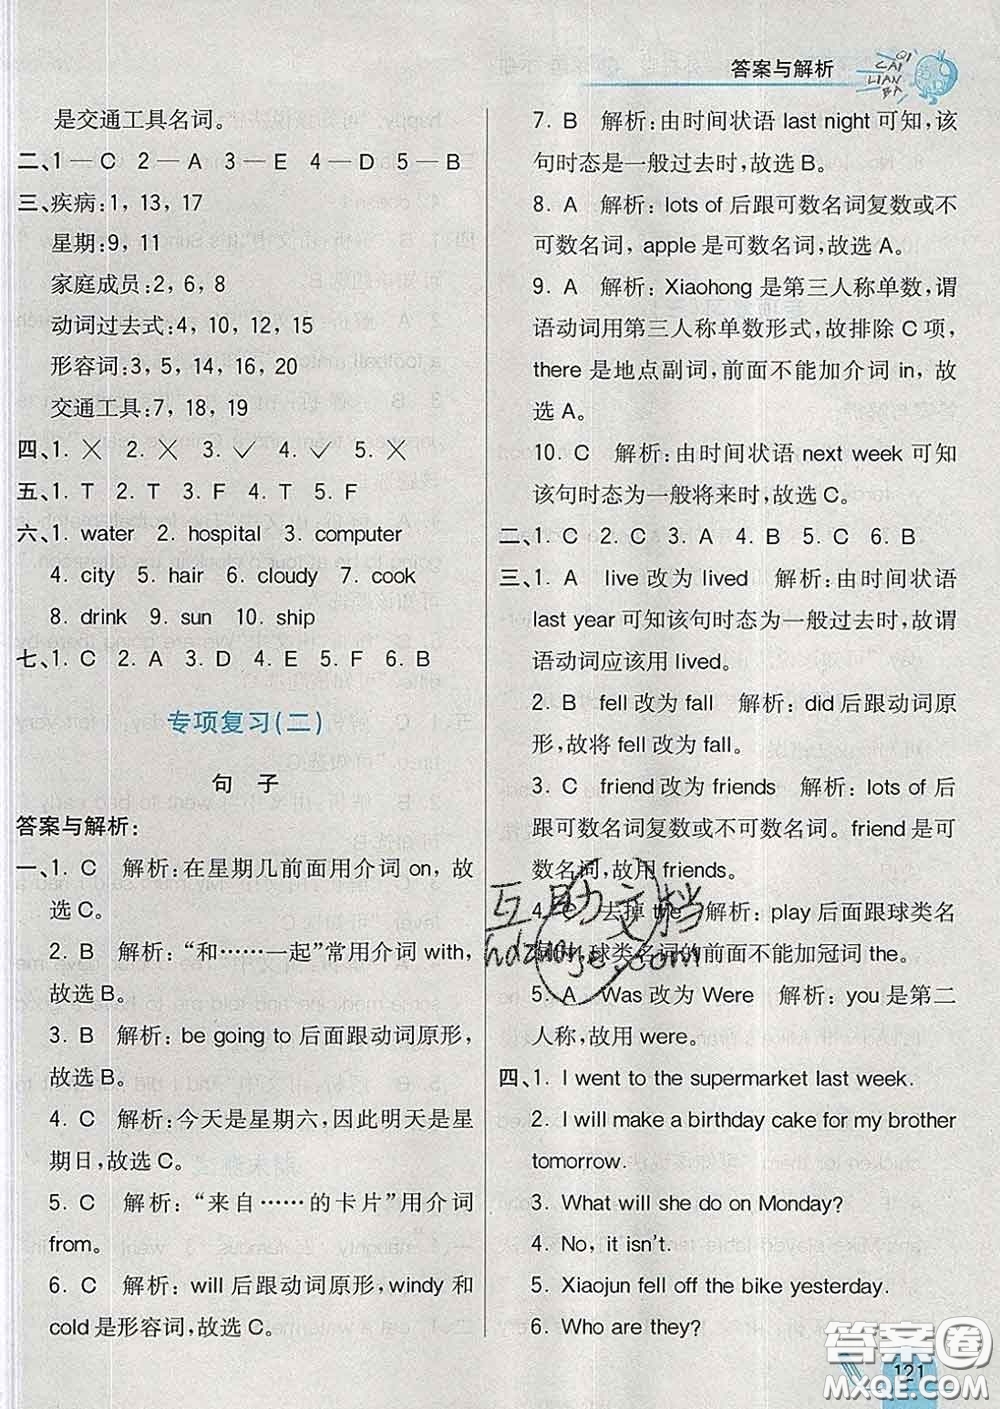 答案与解析
QI
CAI
LIAN
BA
是交通工具名词。
二、1—C 2—A 3—E 4—D 5—B
三、疾病:1, 13, 17
星期:9, 11
家庭成员:2, 6, 8
动词过去式:4, 10, 12, 15
形容词:3, 5, 14, 16, 20
交通工具:7, 18, 19
四、1. × 2. × 3. ✓ 4. ✓ 5. ×
五、1. T 2. T 3. F 4. T 5. F
六、1. water 2. hospital 3. computer
4. city 5. hair 6. cloudy 7. cook
8. drink 9. sun 10. ship
七、1. C 2. A 3. D 4. E 5. F 6. B
专项复习(二)
句 子
答案与解析:
一、1. C 解析:在星期几前面用介词 on, 故
选 C。
2. B 解析:“和……一起”常用介词 with,
故选 B。
3. B 解析:be going to 后面跟动词原形,
故选 B。
4. C 解析:今天是星期六,因此明天是星
期日,故选 C。
5. C 解析:“来自……的卡片”用介词
from。
6. C 解析:will 后跟动词原形, windy 和
cold 是形容词,故选 C。
7. B 解析:由时间状语 last night 可知,该
句时态是一般过去时,故选 B。
8. A 解析:lots of 后跟可数名词复数或不
可数名词, apple 是可数名词,故选 A。
9. A 解析:Xiaohong 是第三人称单数,谓
语动词用第三人称单数形式,故排除 C 项,
there 是地点副词,前面不能加介词 in,故
选 A。
10. C 解析:由时间状语 next week 可知
该句时态为一般将来时,故选 C。
二、1. C 2. C 3. A 4. B 5. C 6. B
三、1. A live 改为 lived 解析:由时间状语
last year 可知该句时态为一般过去时,故谓
语动词应该用 lived。
2. B fell 改为 fall 解析:did 后跟动词原
形,故将 fell 改为 fall。
3. C friend 改为 friends 解析:lots of 后
跟可数名词复数或不可数名词。friend 是可
数名词,故用 friends。
4. C 去掉 the 解析:play 后面跟球类名
词时,球类名词的前面不能加冠词 the。
5. A Was 改为 Were 解析:you 是第二
人称,故用 were。
四、1. I went to the supermarket last week.
2. I will make a birthday cake for my brother
tomorrow.
3. What will she do on Monday?
4. No, it isn't.
5. Xiaojun fell off the bike yesterday.
6. Who are they?
121
互助文档
hdzuoye.com
答案圈
MXQE.COM